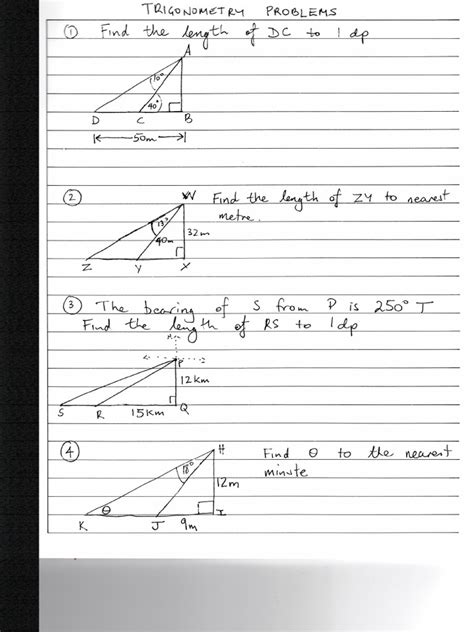 TRIGONOMETRY PROBLEMS
① Find the length of DC to 1 dp
A
10°
40°
D C B
50m
② W Find the length of ZY to nearest
metre.
13°
40m
32m
Z Y X
③ The bearing of S from P is 250° T
Find the length of RS to 1dp
P
12km
S R 15km Q
④ H Find θ to the nearest
minute
18°
12m
θ
K J 9m I